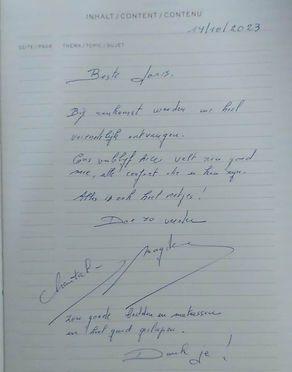 INHALT / CONTENT / CONTENU
14/10/2023
SEITE / PAGE THEMA / TOPIC / SUJET
Beste Joris.
Bij aankomst werden we heel
vriendelijk ontvangen.
Ons verblijf hier valt zeer goed
mee, alle comfort die er kan zijn.
Alles is ook heel netjes!
Doe zo verder
Chantal - Magda
zeer goede bedden en matrassen
en heel goed geslapen.
Dank je!